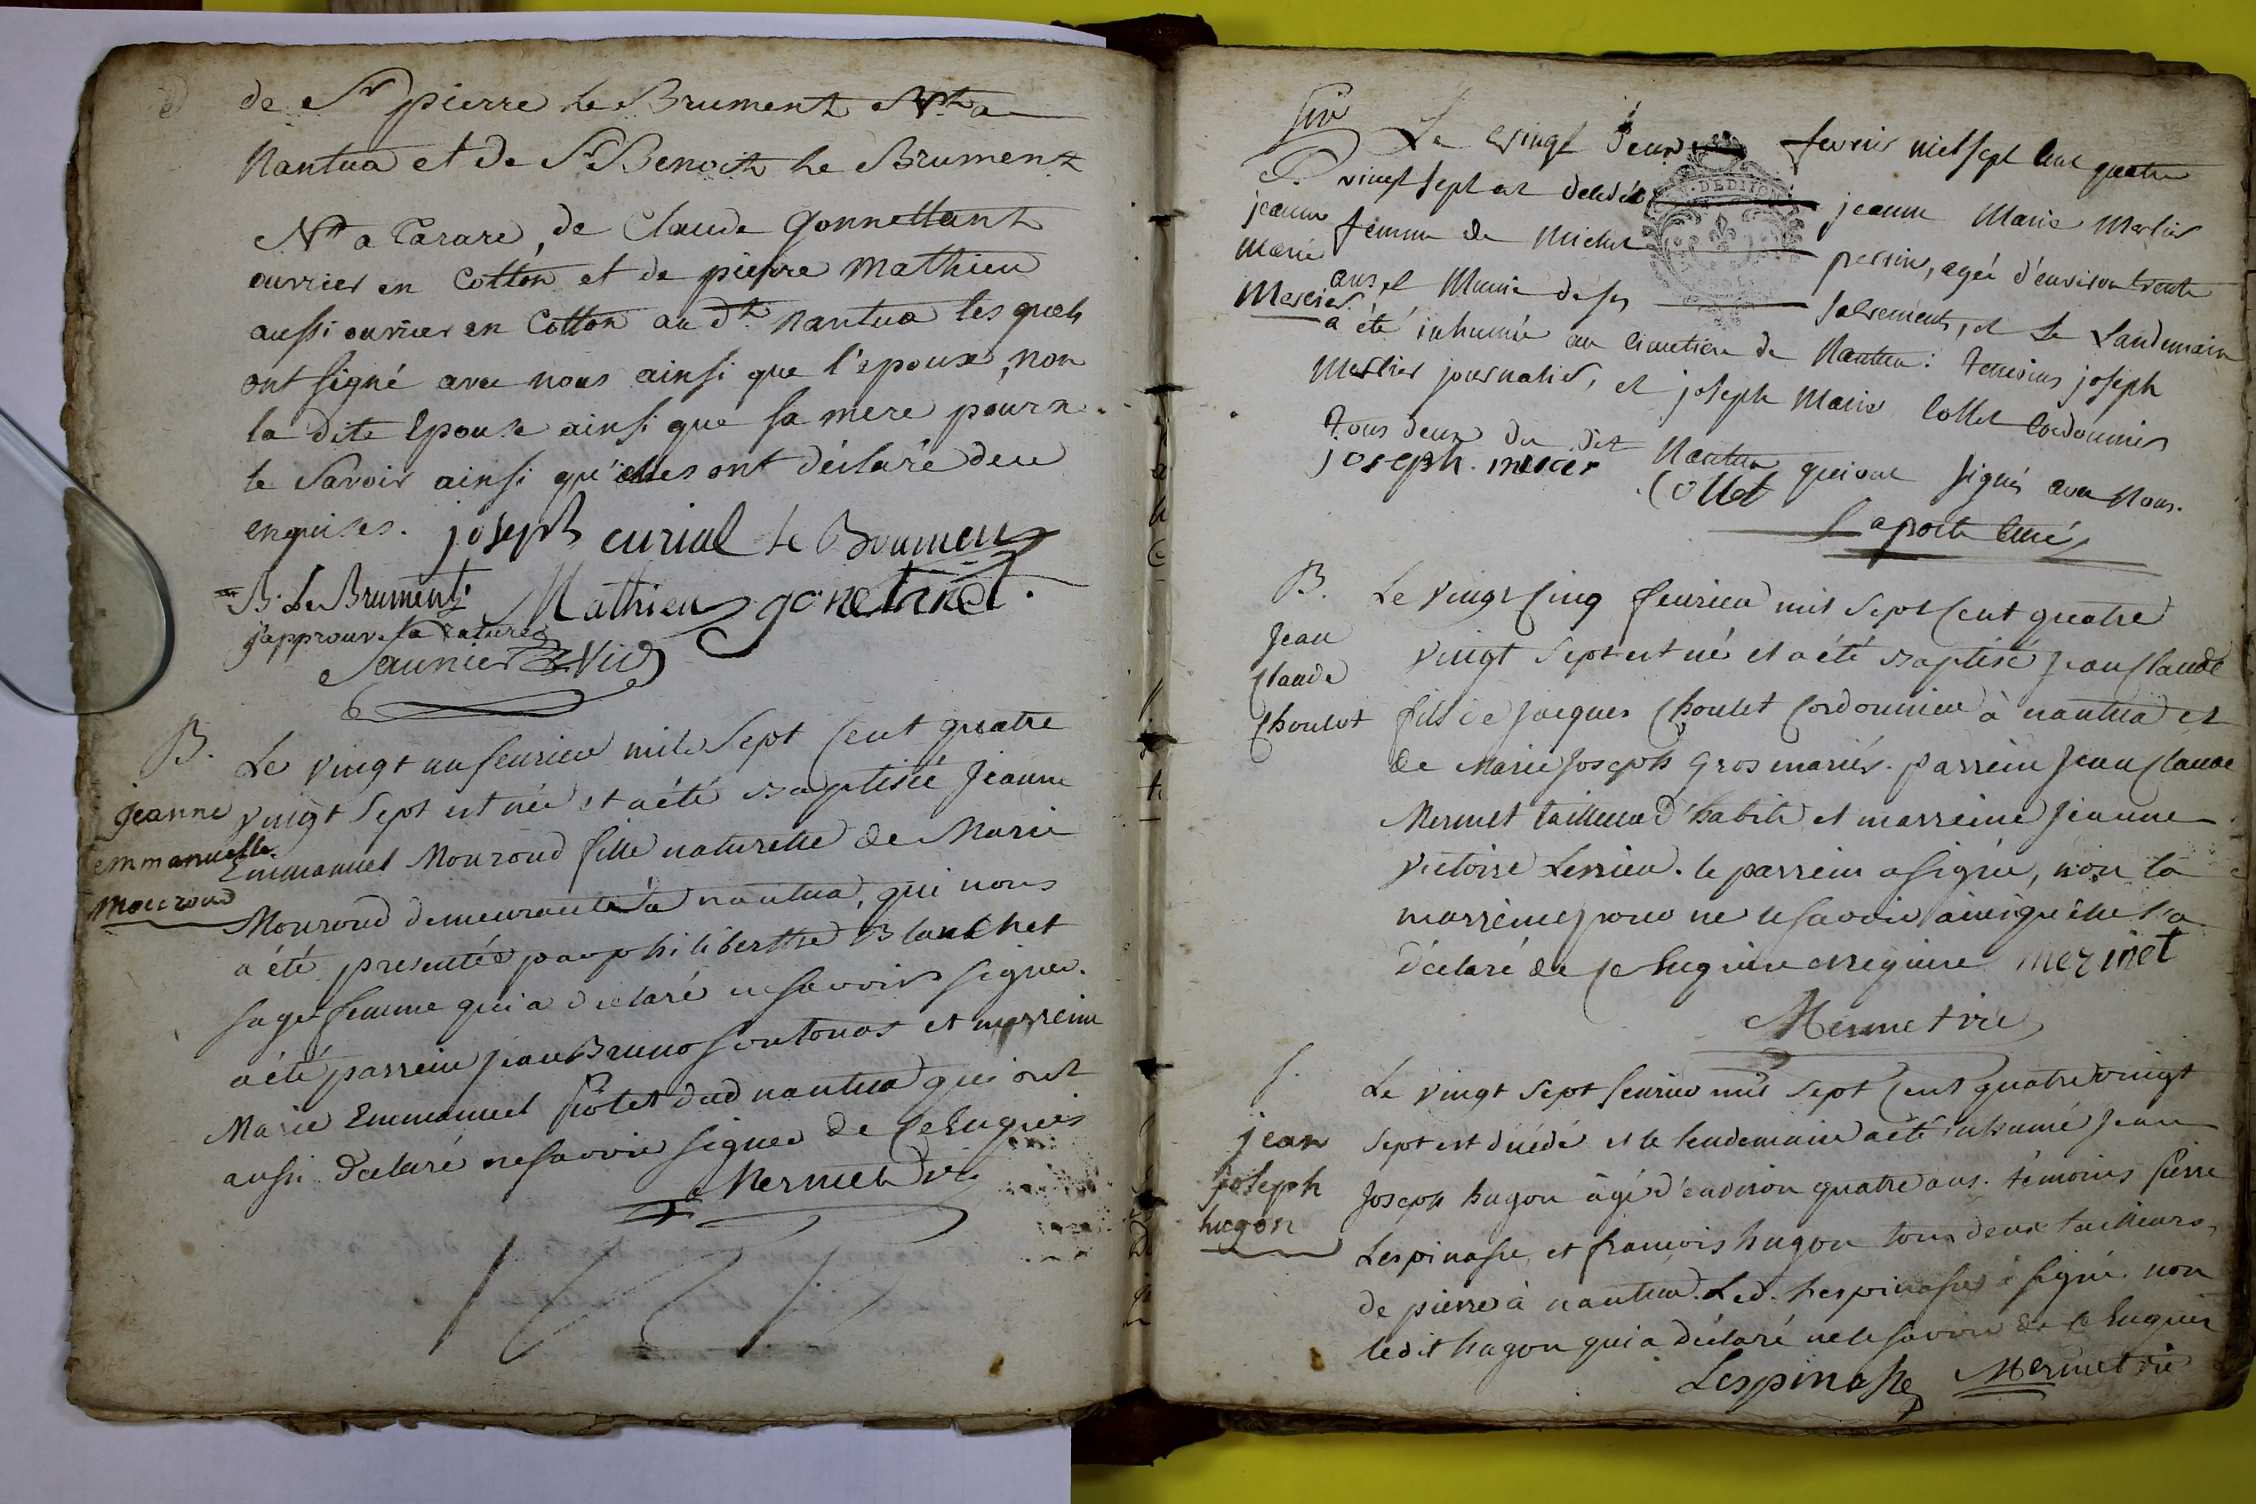 de Sr pierre le Brument Nt a
Nantua et de Sr Benoit le Brument
Nt a Tarare, de Claude Gonnettant
ouvrier en Cotton et de pierre Mathieu
aussi ouvrier en Cotton au dt. Nantua les quels
ont signé avec nous ainsi que l'epoux, non
la dite Epouse ainsi que sa mere pour ne
le savoir ainsi qu'elles ont déclaré de ce
enquises. joseph curial le Brument
B. Le Brument Mathieu gonetant
j'approuve la rature
Saunier Vic
B. Le vingt un feurier mile Sept Cent quatre
jeanne emmanuelle mouroud
vingt Sept est née et a été Baptisée Jeanne
Emmanuel Mouroud fille naturelle de Marie
Mouroud demeurante à nantua, qui nous
a été presentée par philiberthe Blanchet
sage femme qui a declaré ne savoir signer.
a été parrein jean Bruno Soutonas et marreine
Marie Emmanuel Pôtet dud nantua qui ont
aussi déclaré ne savoir signer de ce Enquis
Mermet vic
Le vingt deux fevrier mil sept cent quatre
jeanne marie Mercier
vingt sept est décédée jeanne Marie Mercier
femme de Michel perrin, agée d'environ trente
ans et Munie de ses sacrements, et Le Landemain
a été inhumée au cimetière de Nantua: temoins joseph
Mercier journalier, et joseph Marie Collet Cordonnier
tous deux du dit Nantua qui ont signés avec Nous.
joseph. mercier Collet
Laporte curé
B. Le vingt cinq feurier mil Sept Cent quatre
Jean Claude Choulet
vingt Sept est né et a été Baptisé Jean Claude
fils de Jacques Choulet Cordonnier à nantua et
de Marie Joseph Gros mariés. parrein Jean Claude
Mermet tailleur d'habits et marreine Jeanne
Victoire . le parrein a signé, non la
marreine pour ne le savoir ainsi qu'elle l'a
déclaré de ce Enquise et requise mermet
Mermet vic
S. Le vingt Sept feurier mil Sept Cent quatre vingt
jean joseph hugon
Sept est décédé et le lendemain a été inhumé Jean
Joseph hugon âgé d'environ quatre ans. témoins Pierre
Lespinasse et françois hugon tous deux tailleurs
de pierre à nantua. Led. Lespinasse a signé. non
ledit hugon qui a déclaré ne le savoir de ce Enquis
Lespinasse Mermet vic